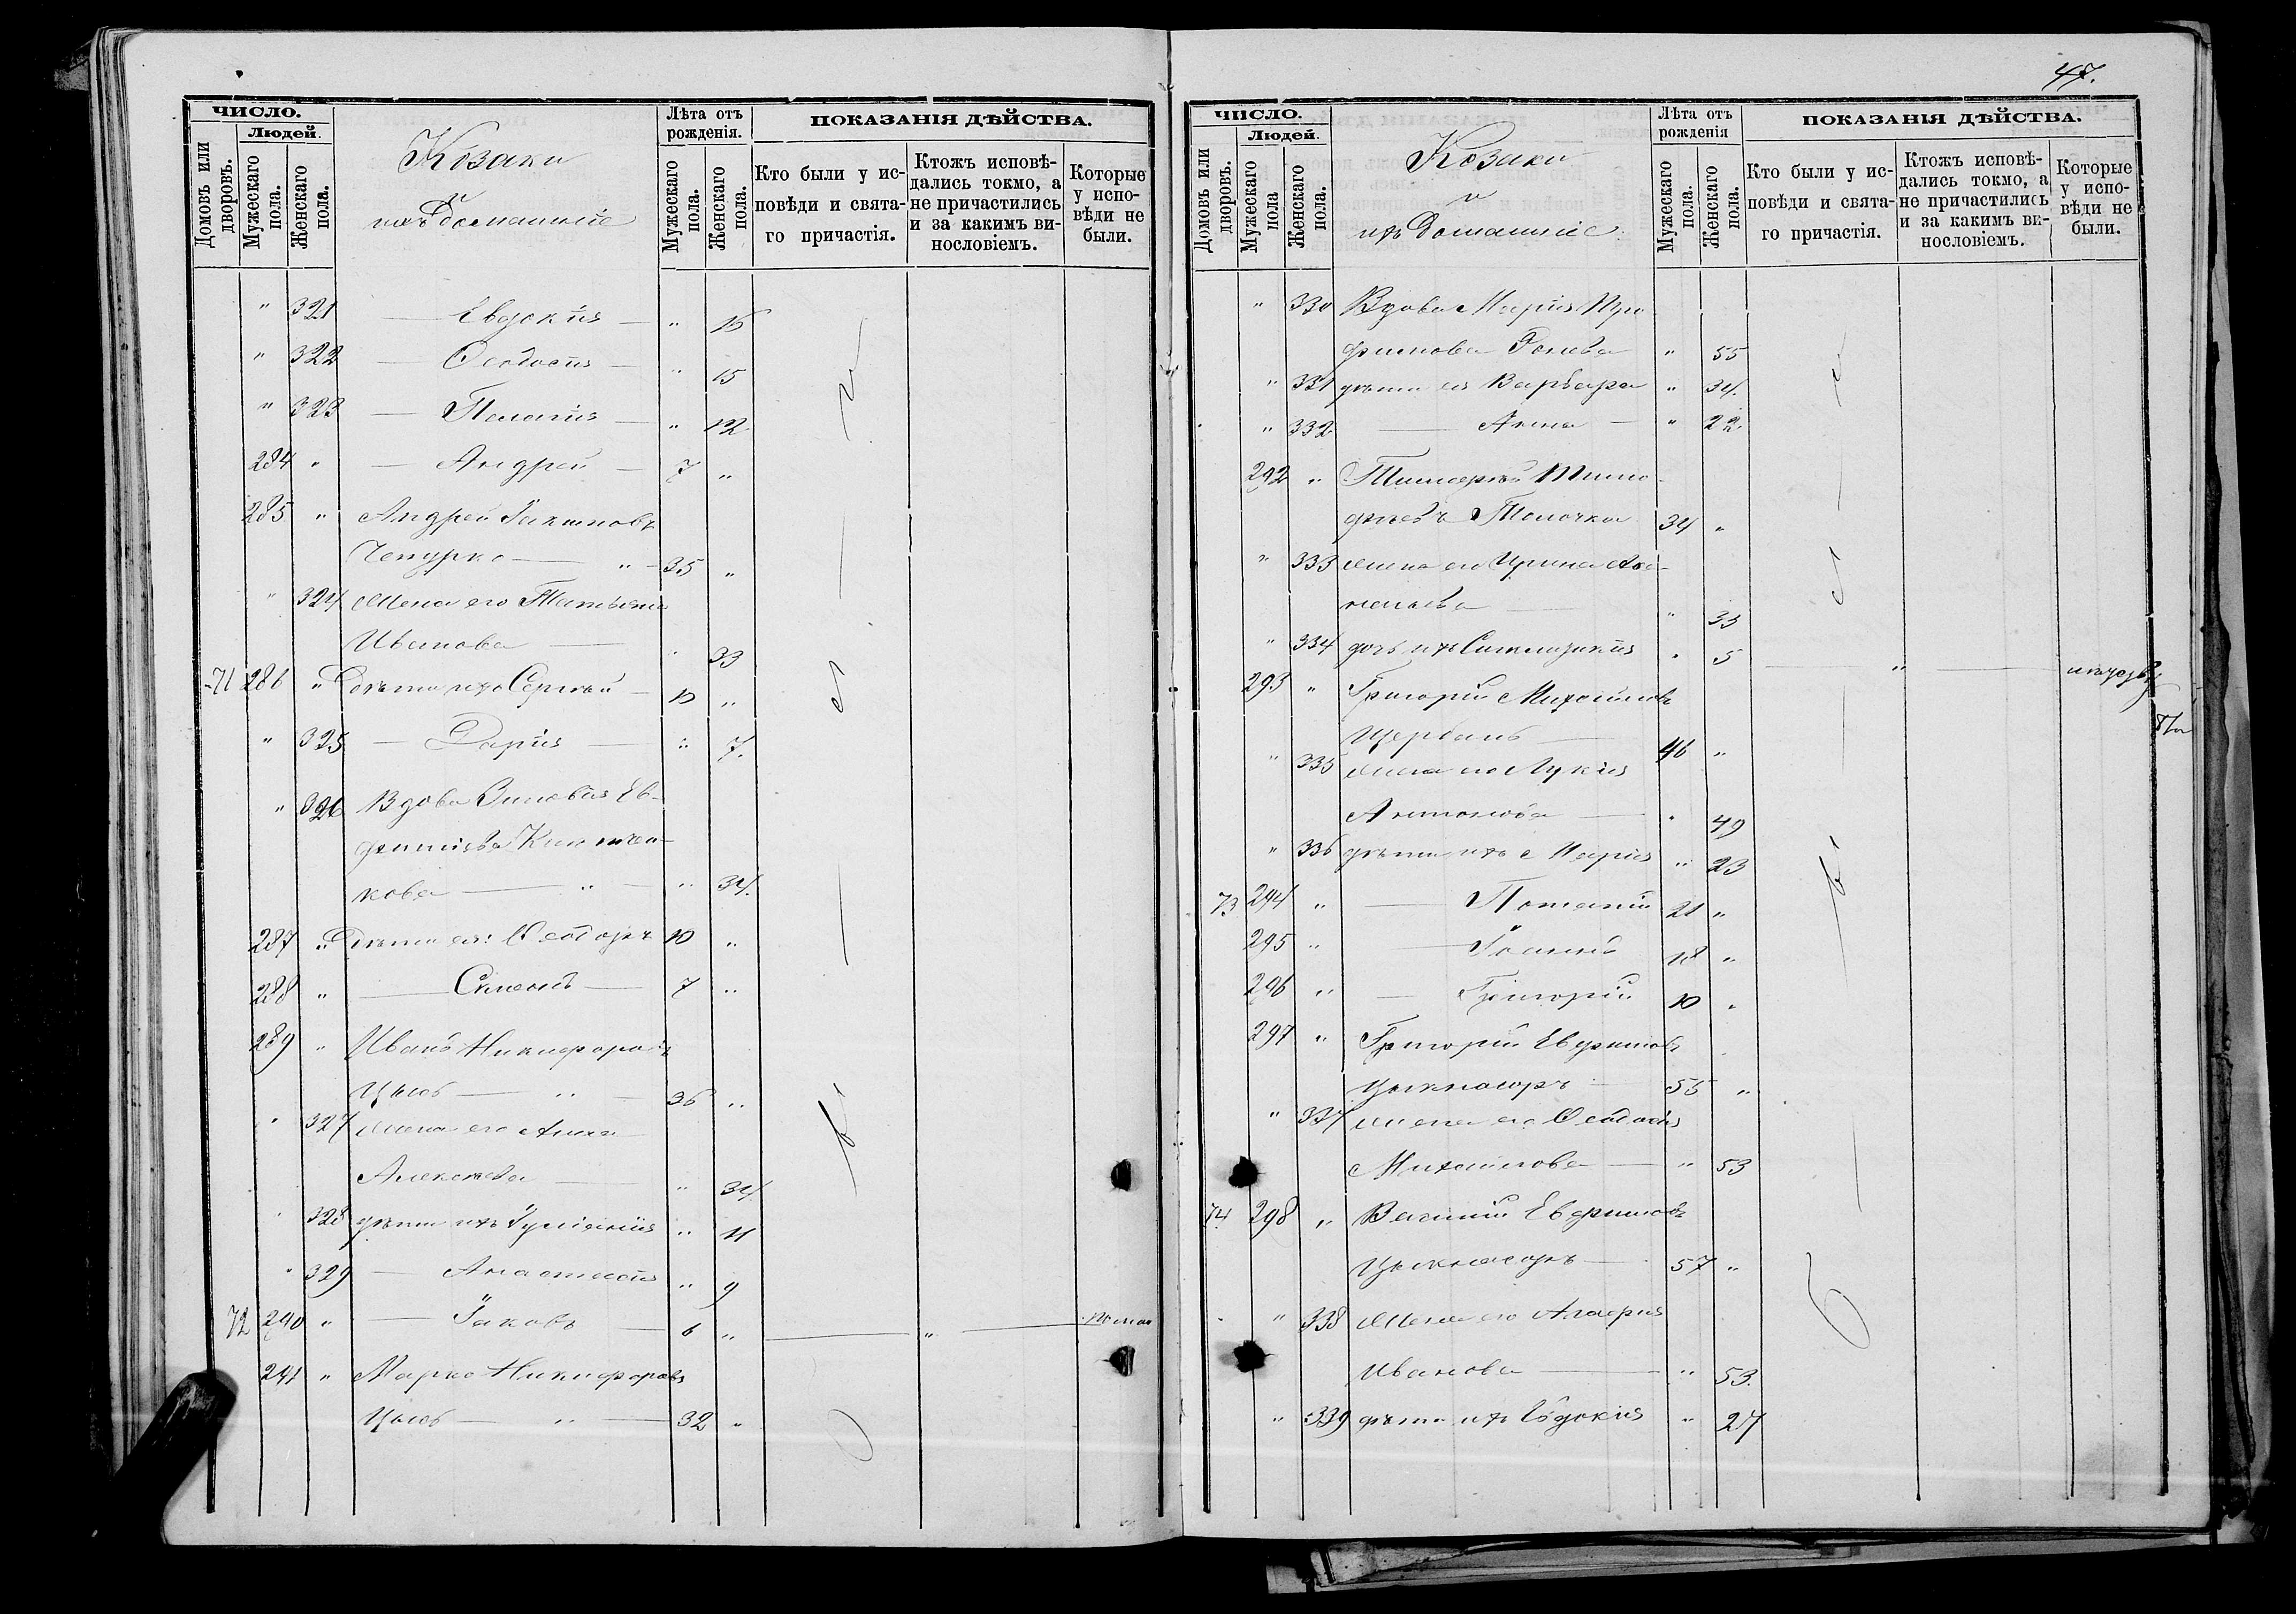 ЧИСЛО.
Людей.
Домовъ или дворовъ.
Мужескаго пола.
Женскаго пола.
Козаки
и
ихъ домашніе
Лѣта отъ рожденія.
Мужескаго пола.
Женскаго пола.
ПОКАЗАНІЯ ДѢЙСТВА.
Кто были у исповѣди и святаго причастія.
Ктожъ исповѣдались токмо, а не причастились и за какимъ винословіемъ.
Которые у исповѣди не были.
" 321 — Евдокія — " 16
" 322 — Ѳеодосія — " 15
" 323 — Пелагія — " 12
284 " — Андрей — 7 "
285 " Андрей Іакимовъ
Чепурко — " — 35 "
" 324 Жена его Татьяна
Иванова — " 33
71 286 " Дѣти ихъ Сергѣй — 10 "
" 325 — Дарія — " 7.
" 326 Вдова Зиновія Ев-
фиміева
кова — " — " 34.
287 " Дѣти ея: Ѳеодоръ 10 "
288 " — Симеонъ — 7 "
289 " Иванъ Никифоровъ
Цысь — " — 36 "
" 327 Жена его Анна
Алексѣева — " 34.
" 328 дѣти ихъ Іуліанія " 11
" 329 — Анастасія " 9
72 290 " — Іаковъ — 6 " — " —
291 " Марко Никифоровъ
Цысь — " — 32 "
47.
ЧИСЛО.
Людей.
Домовъ или дворовъ.
Мужескаго пола
Женскаго пола.
Козаки
и
ихъ домашніе
Лѣта отъ рожденія
Мужескаго пола.
Женскаго пола.
ПОКАЗАНІЯ ДѢЙСТВА.
Кто были у исповѣди и святаго причастія.
Ктожъ исповѣдались токмо, а не причастились и за какимъ винословіемъ.
Которые у исповѣди не были.
" 330 Вдова Марія Тро
фимова " 55
" 331 дѣти ея Варвара " 34.
" 332 — Анна — " 22.
292 " Тимофѣй Тимо-
фѣевъ Толочка 34 "
" 333 жена его Ирина
— " 33
" 334 дочь ихъ " 5 — " —
293 " Григорій Михайловъ
Щербань — 46 "
" 335 жена его Лукія
Антонова — " 49
" 336 дѣти ихъ Марія " 23
73 294 " — Потапій 21 "
295 " — Іоаннъ 18 "
296 " — Григорій 10 "
297 " Григорій Евфимовъ
55 "
" 337 жена его Ѳеодосія
Михайлова — " 53
74 298 " Василій Евфимовъ
57 "
" 338 Жена его Агафія
Иванова — " 53.
" 339 дѣти ихъ Евдокія " 27